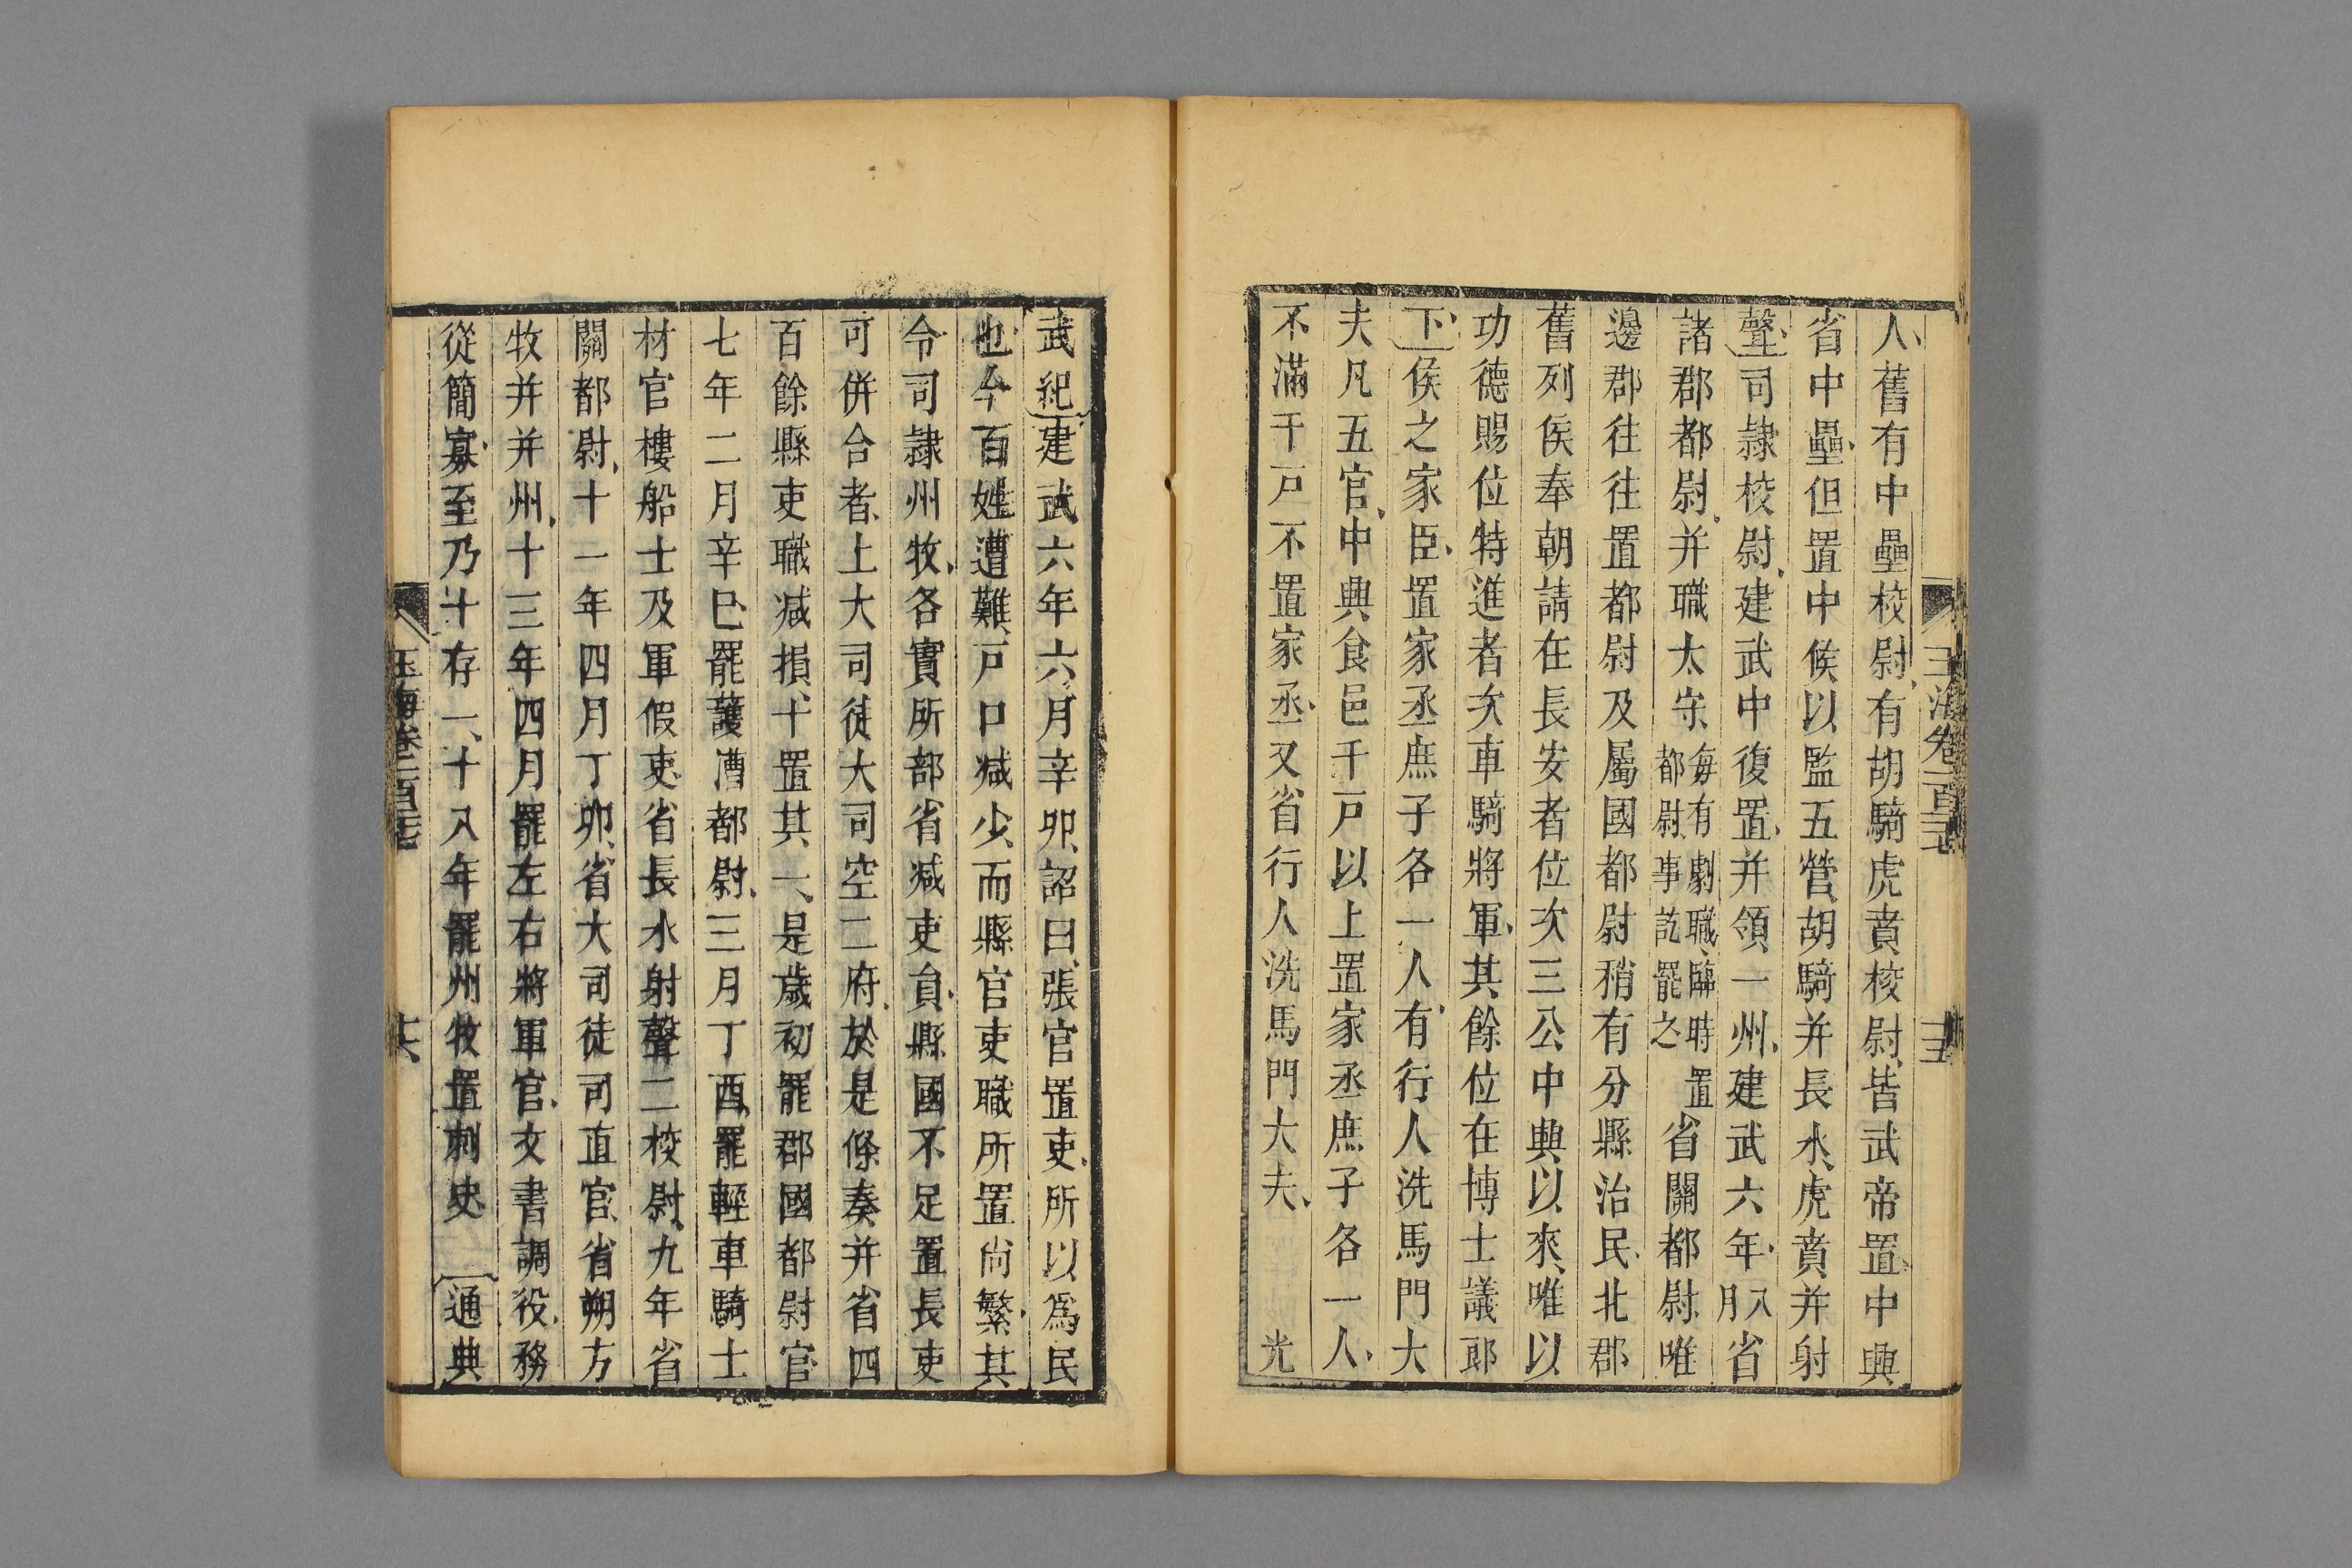 人舊有中壘校尉有胡騎虎賁校尉皆武帝置中興
省中壘但置中候以監五營胡騎并長水虎賁并射
聲司隷校尉建武中復置并領一州建武六年八月省
諸郡都尉并職太守每有劇職臨時置都尉事訖罷之省關都尉唯
邊郡往往置都尉及屬國都尉稍有分縣治民北郡
舊列侯奉朝請在長安者位次三公中興以來唯以
功德賜位特進者次車騎將軍其餘位在博士議郎
下侯之家臣置家丞庶子各一人有行人洗馬門大
夫凡五官中興食邑千戸以上置家丞庶子各一人
不滿千戸不置家丞又省行人洗馬門大夫 光
武紀建武六年六月辛卯詔曰張官置吏所以爲民
也今百姓遭難戸口减少而縣官吏職所置尚繁其
令司隷州牧各實所部省减吏員縣國不足置長吏
可併合者上大司徒大司空二府於是條奏并省四
百餘縣吏職减損十置其一是歲初罷郡國都尉官
七年二月辛巳罷護漕都尉三月丁酉罷輕車騎士
材官樓船士及軍假吏省長水射聲二校尉九年省
關都尉十一年四月丁卯省大司徒司直官省朔方
牧并并州十三年四月罷左右將軍官文書調役務
從簡寡至乃十存一十八年罷州牧置刺史 通典
玉海卷一百二十七